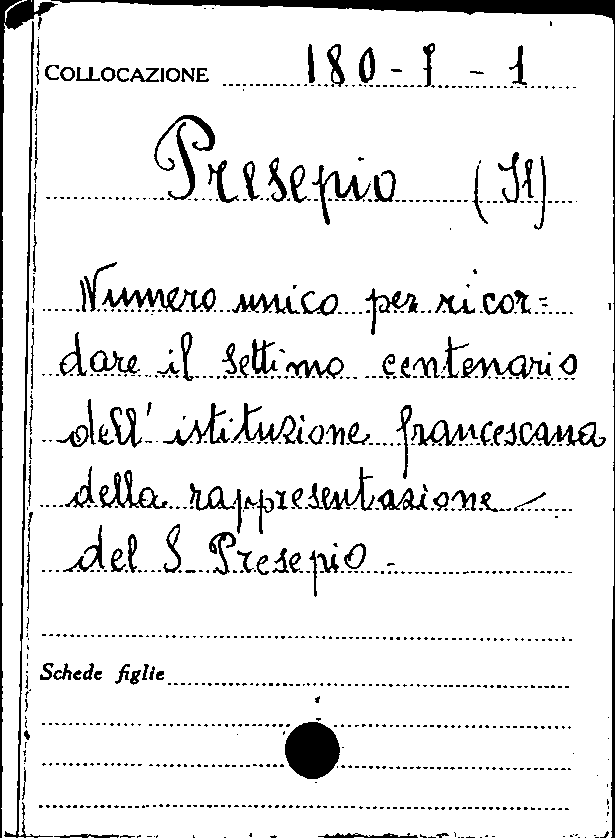 COLLOCAZIONE 180-I-1
Presepio (Il)
Numero unico per ricor=
dare il settimo centenario
dell'istituzione francescana
della rappresentazione
del S Presepio.
Schede figlie